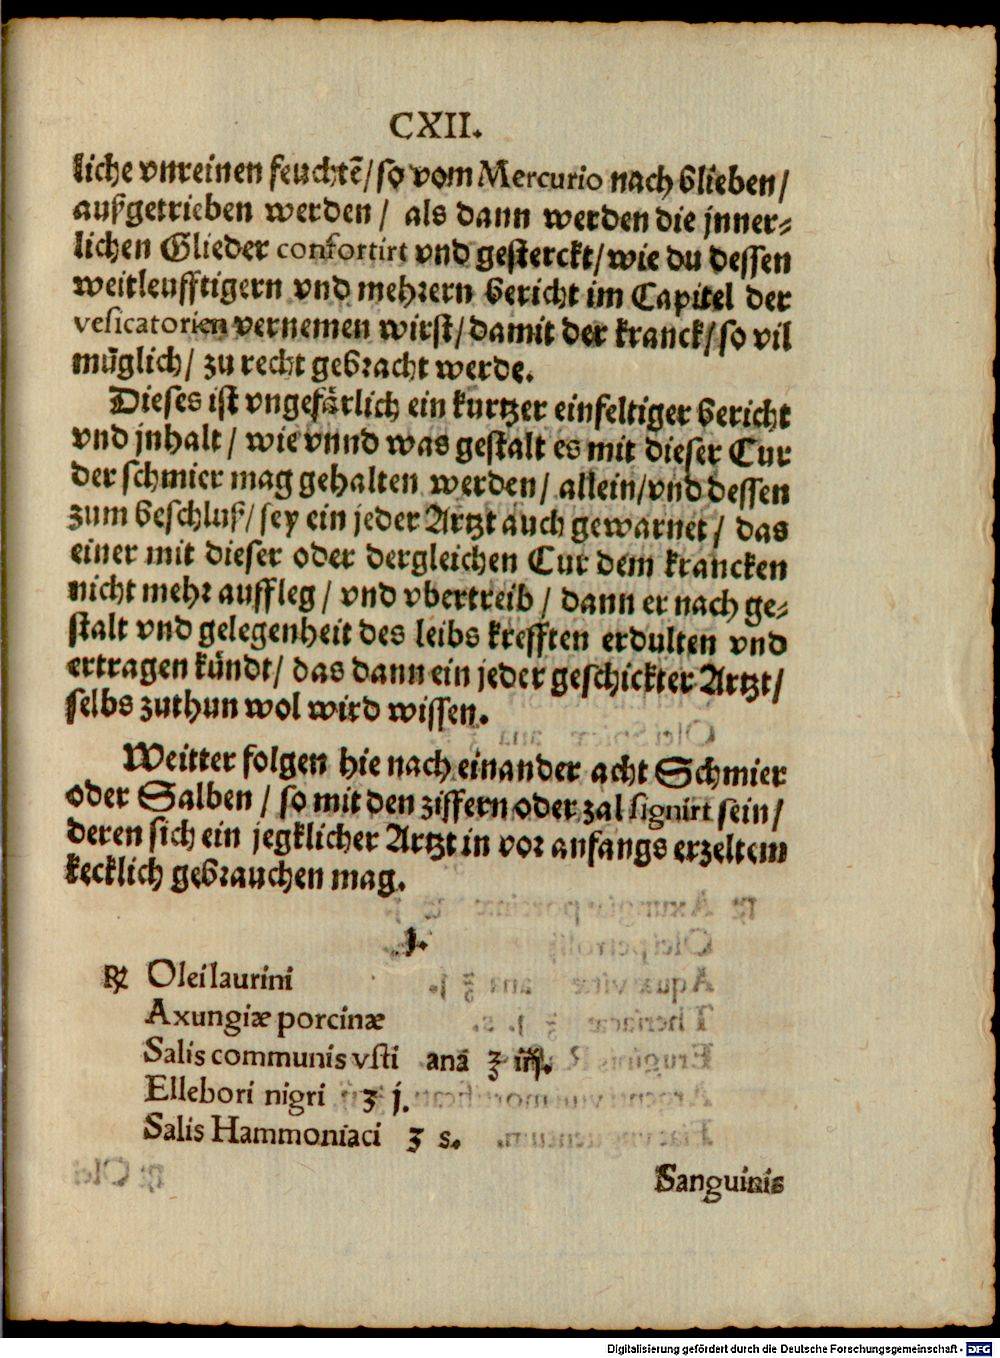 CXII.
liche vnreinen feuchtẽ/ so vom Mercurio nach blieben/
außgetrieben werden/ als dann werden die jnner⸗
lichen Glieder confortirt vnd gesterckt/ wie du dessen
weitleufftigern vnd mehrern bericht im Capitel der
vesicatorien vernemen wirst/ damit der kranck/ so vil
müglich/ zu recht gebracht werde.
Dieses ist vngefärlich ein kurtzer einfeltiger bericht
vnd jnhalt/ wie vnnd was gestalt es mit dieser Cur
der schmier mag gehalten werden/ allein/ vnd dessen
zum beschluß/ sey ein jeder Artzt auch gewarnet/ das
einer mit dieser oder dergleichen Cur dem krancken
nicht mehr auffleg/ vnd vbertreib/ dann er nach ge⸗
stalt vnd gelegenheit des leibs krefften erdulten vnd
ertragen kündt/ das dann ein jeder geschickter Artzt/
selbs zuthun wol wird wissen.
Weitter folgen hie nach einander acht Schmier
oder Salben/ so mit den ziffern oder zal signirt sein/
deren sich ein jegklicher Artzt in vor anfangs erzeltem
kecklich gebrauchen mag.
1.
℞ Olei laurini
Axungiæ porcinæ
Salis communis vsti anã ℥ iiij.
Ellebori nigri ʒ j.
Salis Hammoniaci ʒ s.
Sanguinis
Digitalisierung gefördert durch die Deutsche Forschungsgemeinschaft - DFG